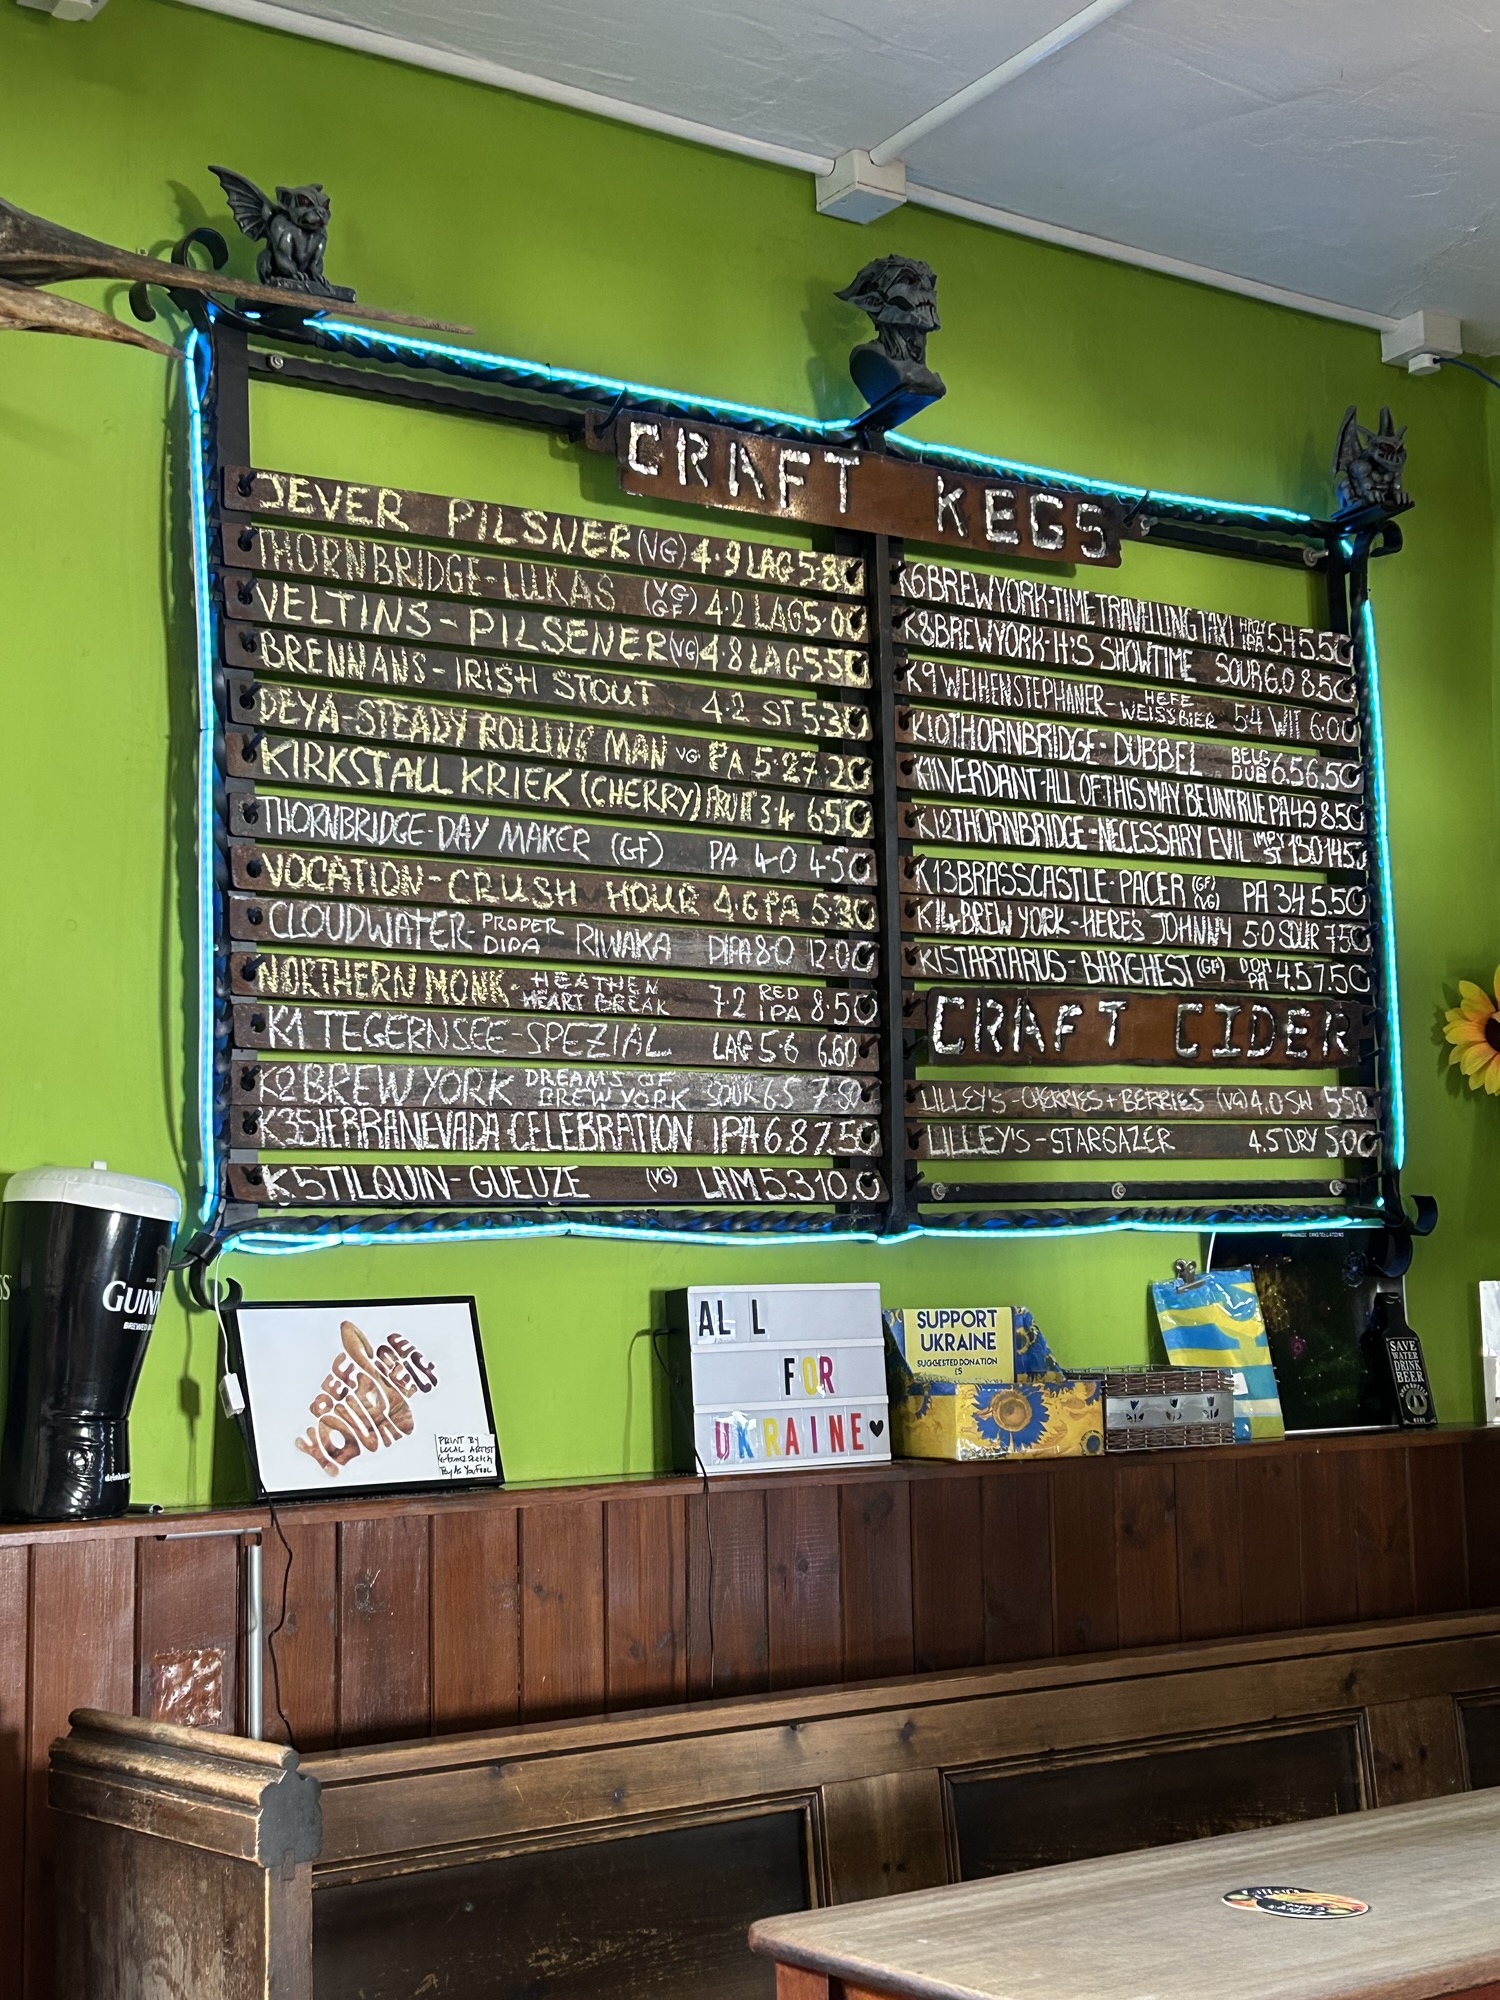 CRAFT KEGS
JEVER PILSNER (VG) 4.9 LAG 5.80
THORNBRIDGE-LUKAS (VG GF) 4.2 LAG 5.00
VELTINS-PILSENER (VG) 4.8 LAG 5.50
BRENNANS-IRISH STOUT 4.2 ST 5.30
DEYA-STEADY ROLLING MAN VG PA 5.2 7.20
KIRKSTALL KRIEK (CHERRY) FRUIT 3.4 6.50
THORNBRIDGE-DAY MAKER (GF) PA 4.0 4.50
VOCATION-CRUSH HOUR 4.6 PA 5.30
CLOUDWATER-PROPER DIPA RIWAKA DIPA 8.0 12.00
NORTHERN MONK-HEATHEN HEART BREAK 7.2 RED IPA 8.50
K1 TEGERNSEE-SPEZIAL LAG 5.6 6.60
K2 BREW YORK DREAMS OF BREW YORK SOUR 6.5 7.80
K3 SIERRA NEVADA CELEBRATION IPA 6.8 7.50
K5 TILQUIN-GUEUZE (VG) LAM 5.3 10.0
K6 BREW YORK-TIME TRAVELLING TAXI HAZY IPA 5.4 5.50
K8 BREW YORK-IT'S SHOWTIME SOUR 6.0 8.50
K9 WEIHENSTEPHANER-HEFE WEISSBIER 5.4 WIT 6.00
K10 THORNBRIDGE-DUBBEL BELG DUB 6.5 6.50
K11 VERDANT-ALL OF THIS MAY BE UNTRUE PA 4.9 8.50
K12 THORNBRIDGE-NECESSARY EVIL IMP ST 13.0 14.50
K13 BRASSCASTLE-PACER (GF VG) PA 3.4 5.50
K14 BREW YORK-HERE'S JOHNNY 5.0 SOUR 7.50
K15 TARTARUS-BARGHEST (GF) PA 4.5 7.50
CRAFT CIDER
LILLEY'S-CHERRIES+BERRIES (VG) 4.0 SW 5.50
LILLEY'S-STARGAZER 4.5 DRY 5.00
GUINN
BE YOURSELF
PRINT BY
LOCAL ARTIST
ALL
FOR
UKRAINE♥
SUPPORT
UKRAINE
SUGGESTED DONATION
IS
SAVE
WATER
DRINK
BEER